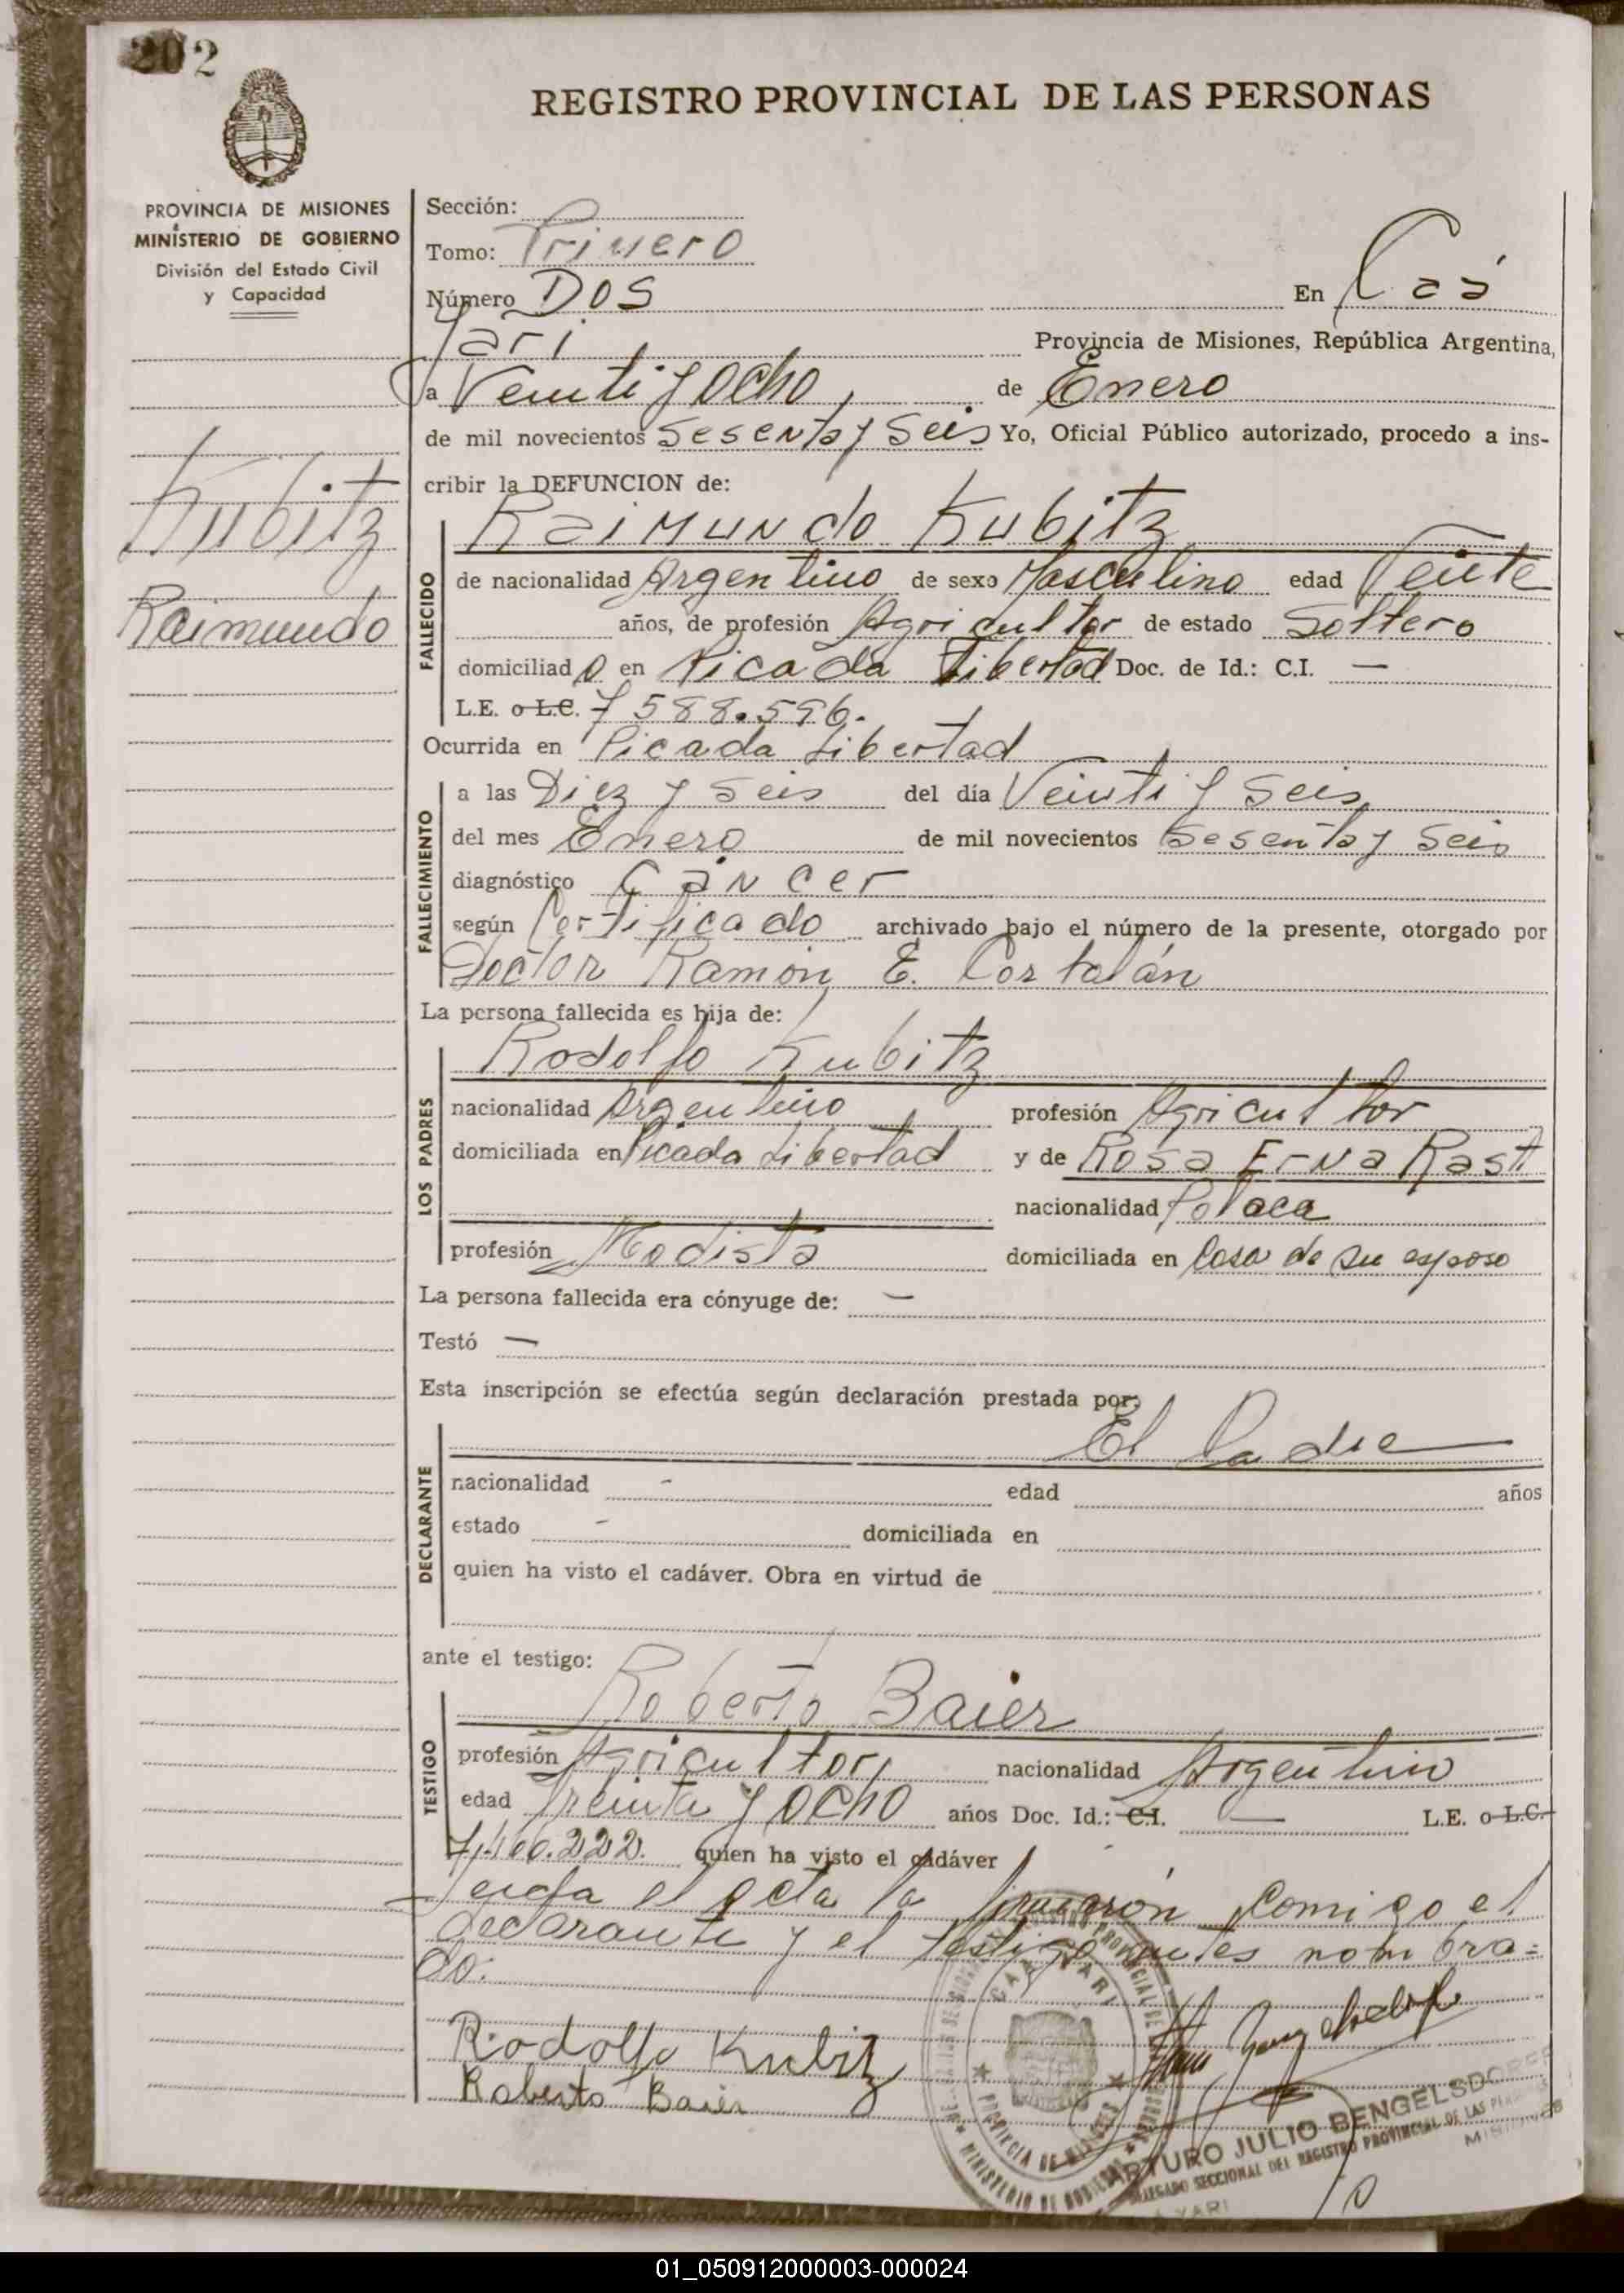 202
REGISTRO PROVINCIAL DE LAS PERSONAS
PROVINCIA DE MISIONES
MINISTERIO DE GOBIERNO
División del Estado Civil
y Capacidad
Kubitz
Raimundo
Sección:
Tomo: Primero
Número Dos En Caá
Yari Provincia de Misiones, República Argentina,
a Veinti y Ocho de Enero
de mil novecientos Sesenta y Seis Yo, Oficial Público autorizado, procedo a ins-
cribir la DEFUNCION de:
Raimundo Kubitz
FALLECIDO
de nacionalidad Argentino de sexo Masculino edad Veinte
años, de profesión Agricultor de estado Soltero
domiciliad o en Picada Libertad Doc. de Id.: C.I. —
L.E. o L.C. 7588.596.
Ocurrida en Picada Libertad
FALLECIMIENTO
a las Diez y Seis del día Veinti y Seis
del mes Enero de mil novecientos Sesenta y Seis
diagnóstico Cáncer
según Certificado archivado bajo el número de la presente, otorgado por
Doctor Ramón E. Cortalán
La persona fallecida es hija de:
Rodolfo Kubitz
LOS PADRES
nacionalidad Argentino profesión Agricultor
domiciliada en Picada Libertad y de Rosa Erna Rast
nacionalidad Polaca
profesión Modista domiciliada en Casa de su esposo
La persona fallecida era cónyuge de: —
Testó —
Esta inscripción se efectúa según declaración prestada por:
El Padre
DECLARANTE
nacionalidad - edad años
estado - domiciliada en
quien ha visto el cadáver. Obra en virtud de
ante el testigo:
Roberto Baier
TESTIGO
profesión Agricultor nacionalidad Argentino
edad Treinta y Ocho años Doc. Id.: C.I. — L.E. o L.C.
7.466.222. quien ha visto el cadáver
Leida el acta la firmarón comigo el
declarante y el testigo antes nombra=
do.
Rodolfo Kubitz
Roberto Baier
CAA YARI
PROVINCIA DE MISIONES
MINISTERIO DE GOBIERNO
ARTURO JULIO BENGELSDORFF
DELEGADO SECCIONAL DEL REGISTRO PROVINCIAL DE LAS
MISIONES
YARI
01_050912000003-000024